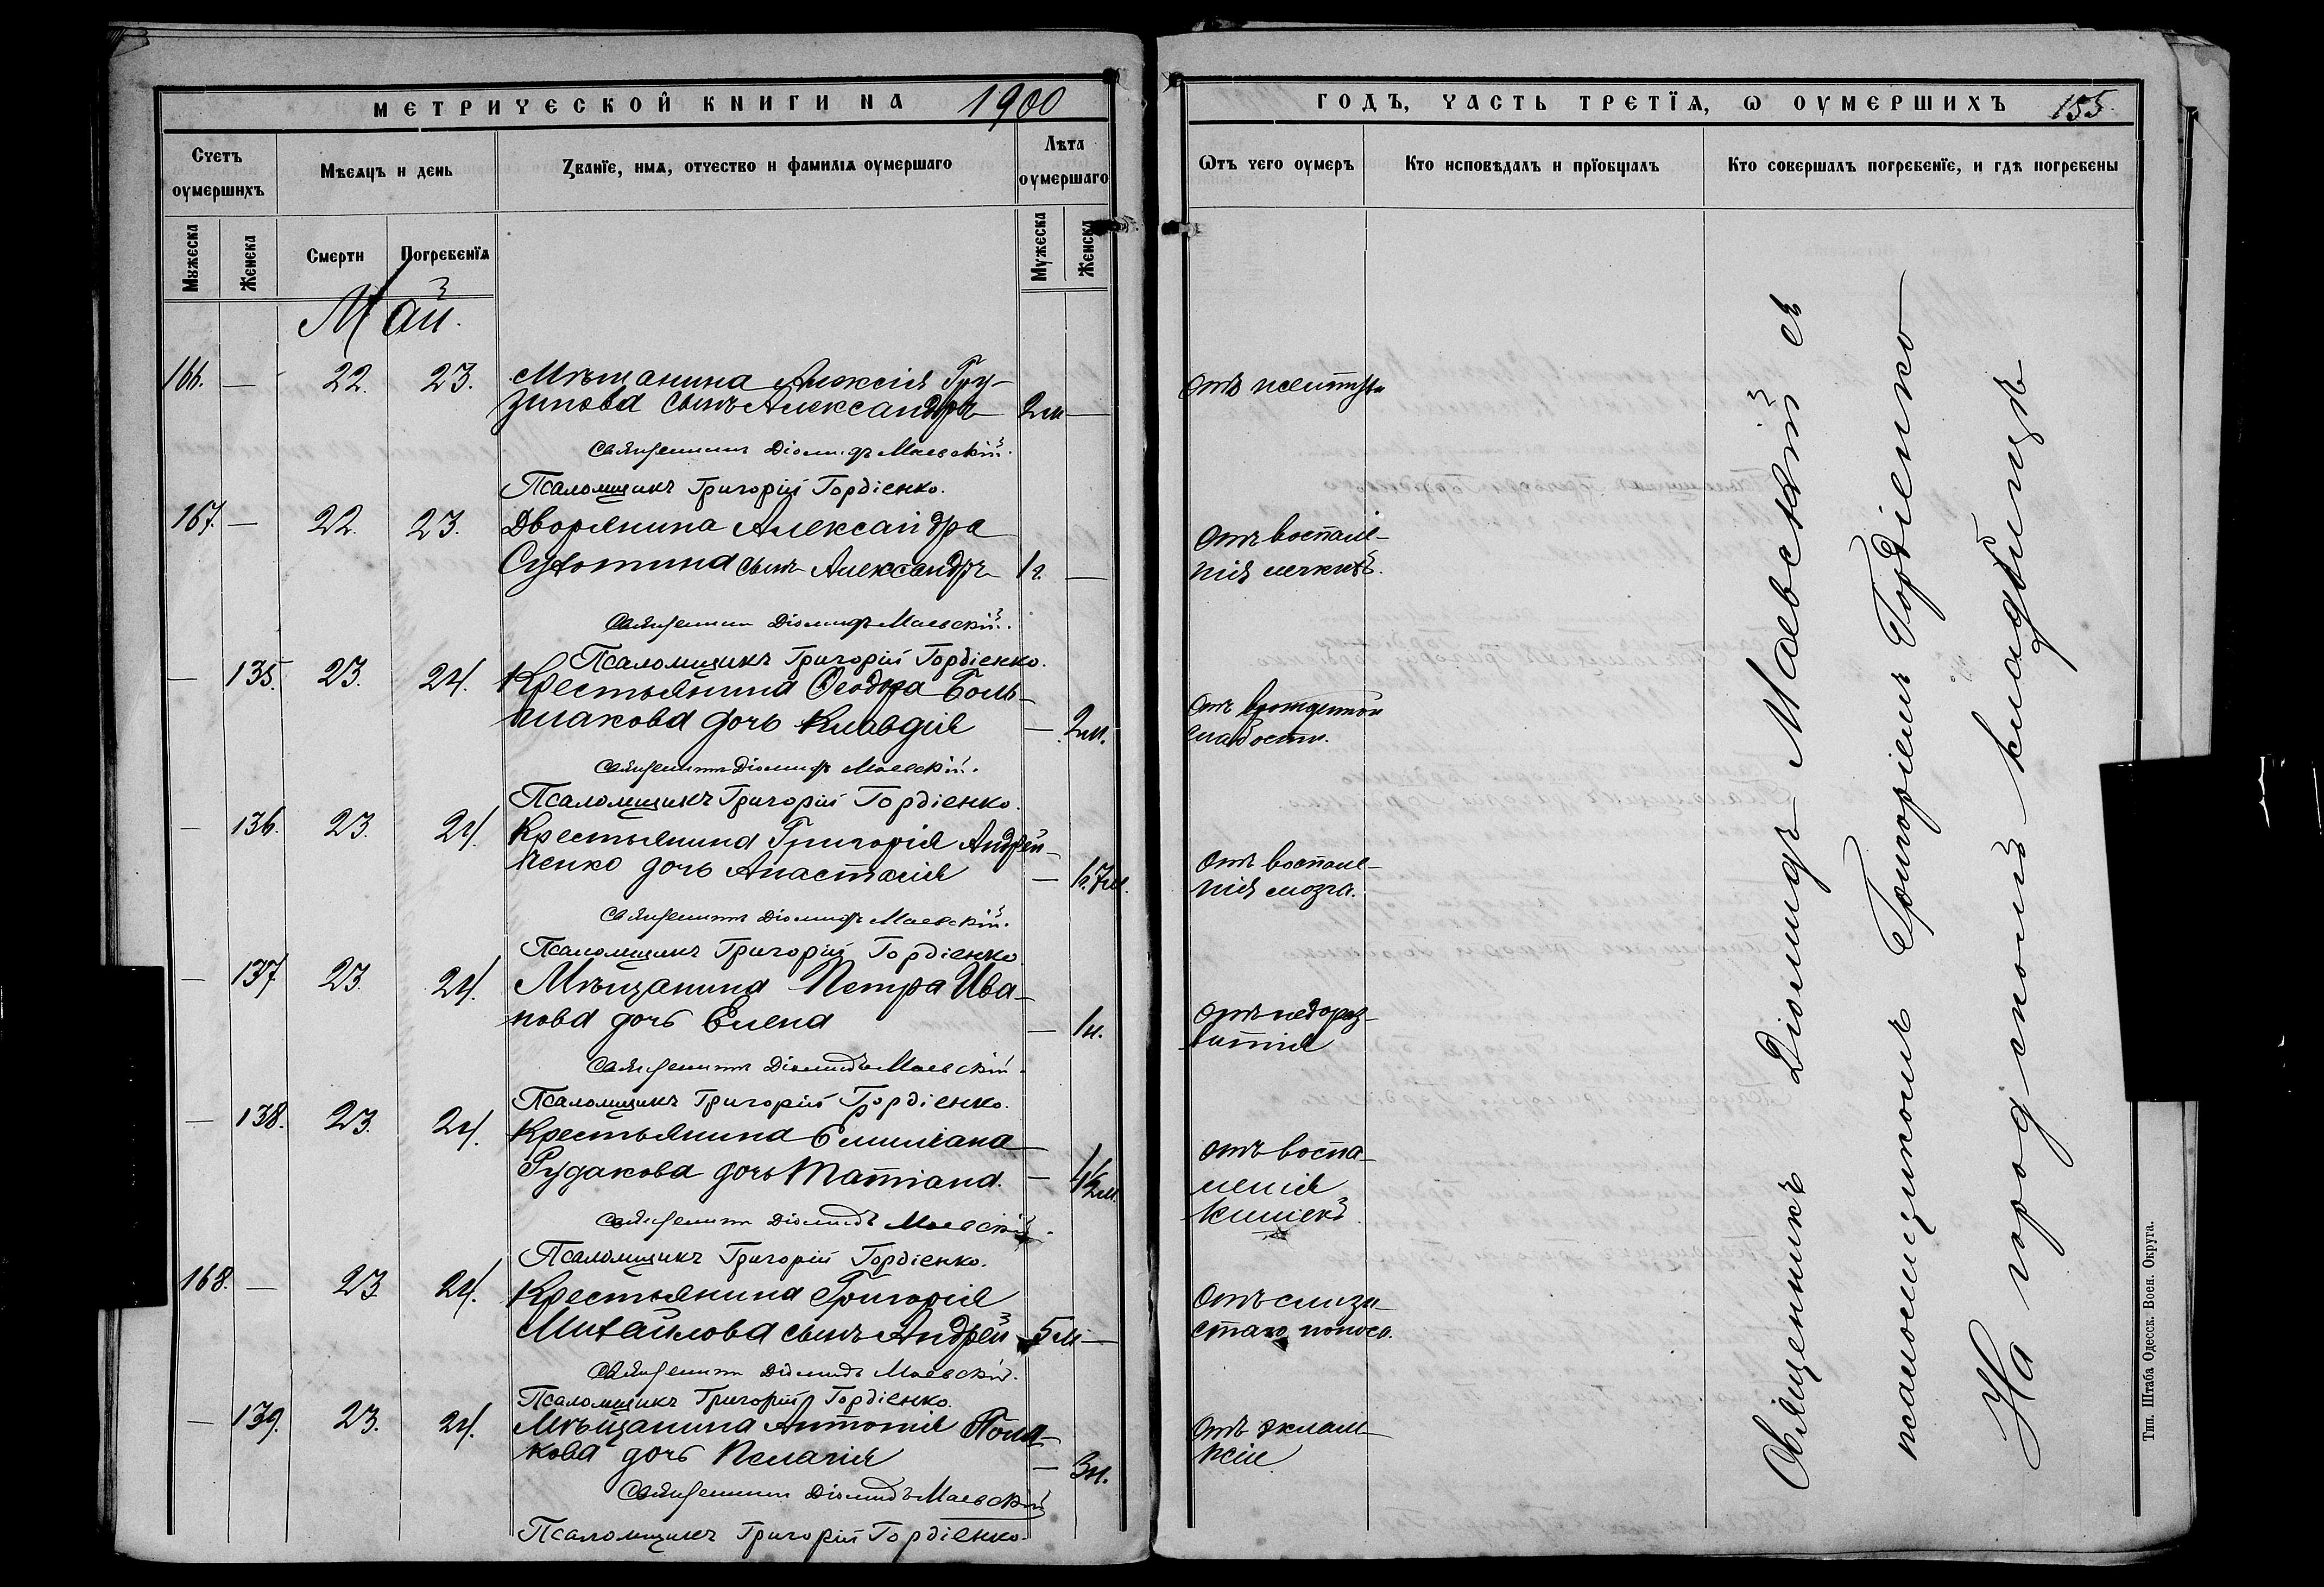 МЕТРИЧЕСКОЙ КНИГИ НА 1900
Счетъ оумершихъ
Мѣсяцъ и день
Званіе, имя, отчество и фамилія оумершаго
Лѣта оумершаго
Мужеска
Женска
Смерти
Погребенїя
Мужеска
Женска
Май.
166. — 22. 23. Мѣщанина Алексія Гру-
зинова сынъ Александръ 2 м —
Священникъ Діомидъ Маевскій.
Псаломщикъ Григорій Гордіенко.
167. — 22. 23. Дворянина Александра
Сухотина сынъ Александръ 1 г. —
Священникъ Діомидъ Маевскій.
Псаломщикъ Григорій Гордіенко.
— 135. 23. 24. Крестьянина Ѳеодора Боль-
шакова дочь Клавдія — 2 м.
Священникъ Діомидъ Маевскій.
Псаломщикъ Григорій Гордіенко.
— 136. 23. 24. Крестьянина Григорія Андрей-
ченко дочь Анастасія — 1 г. 7 м.
Священникъ Діомидъ Маевскій.
Псаломщикъ Григорій Гордіенко
— 137 23. 24. Мѣщанина Петра Ива-
нова дочь Елена — 1 н.
Священникъ Діомидъ Маевскій.
Псаломщикъ Григорій Гордіенко.
— 138. 23. 24. Крестьянина Емиліана
Рудакова дочь Татіана. — м.
Священникъ Діомидъ Маевскій.
Псаломщикъ Григорій Гордіенко.
168. — 23 24. Крестьянина Григорія
Михайлова сынъ Андрей 5 м —
Священникъ Діомидъ Маевскій.
Псаломщикъ Григорій Гордіенко.
— 139. 23. 24. Мѣщанина Антонія Пола-
кова дочь Пелагія — 3 н.
Священникъ Діомидъ Маевскій
Псаломщикъ Григорій Гордіенко.
ГОДЪ, ЧАСТЬ ТРЕТЇЯ, Ѡ ОУМЕРШИХЪ 155.
Ѿтъ чего оумеръ
Кто исповѣдалъ и прїобщалъ
Кто совершалъ погребенїе, и гдѣ погребены
Отъ
Отъ воспале-
нія легкихъ.
Отъ врожденной
слабости.
Отъ воспале-
нія мозга.
Отъ недораз-
витія
Отъ воспа-
ленія
кишекъ
Отъ слизи-
стаго поноса.
Отъ эклам-
псіи
Священникъ Діомидъ Маевскій съ
псаломщикомъ Григоріемъ Гордіенко
На городскомъ кладбищѣ
Тип. Штаба Одесск. Воен. Округа.